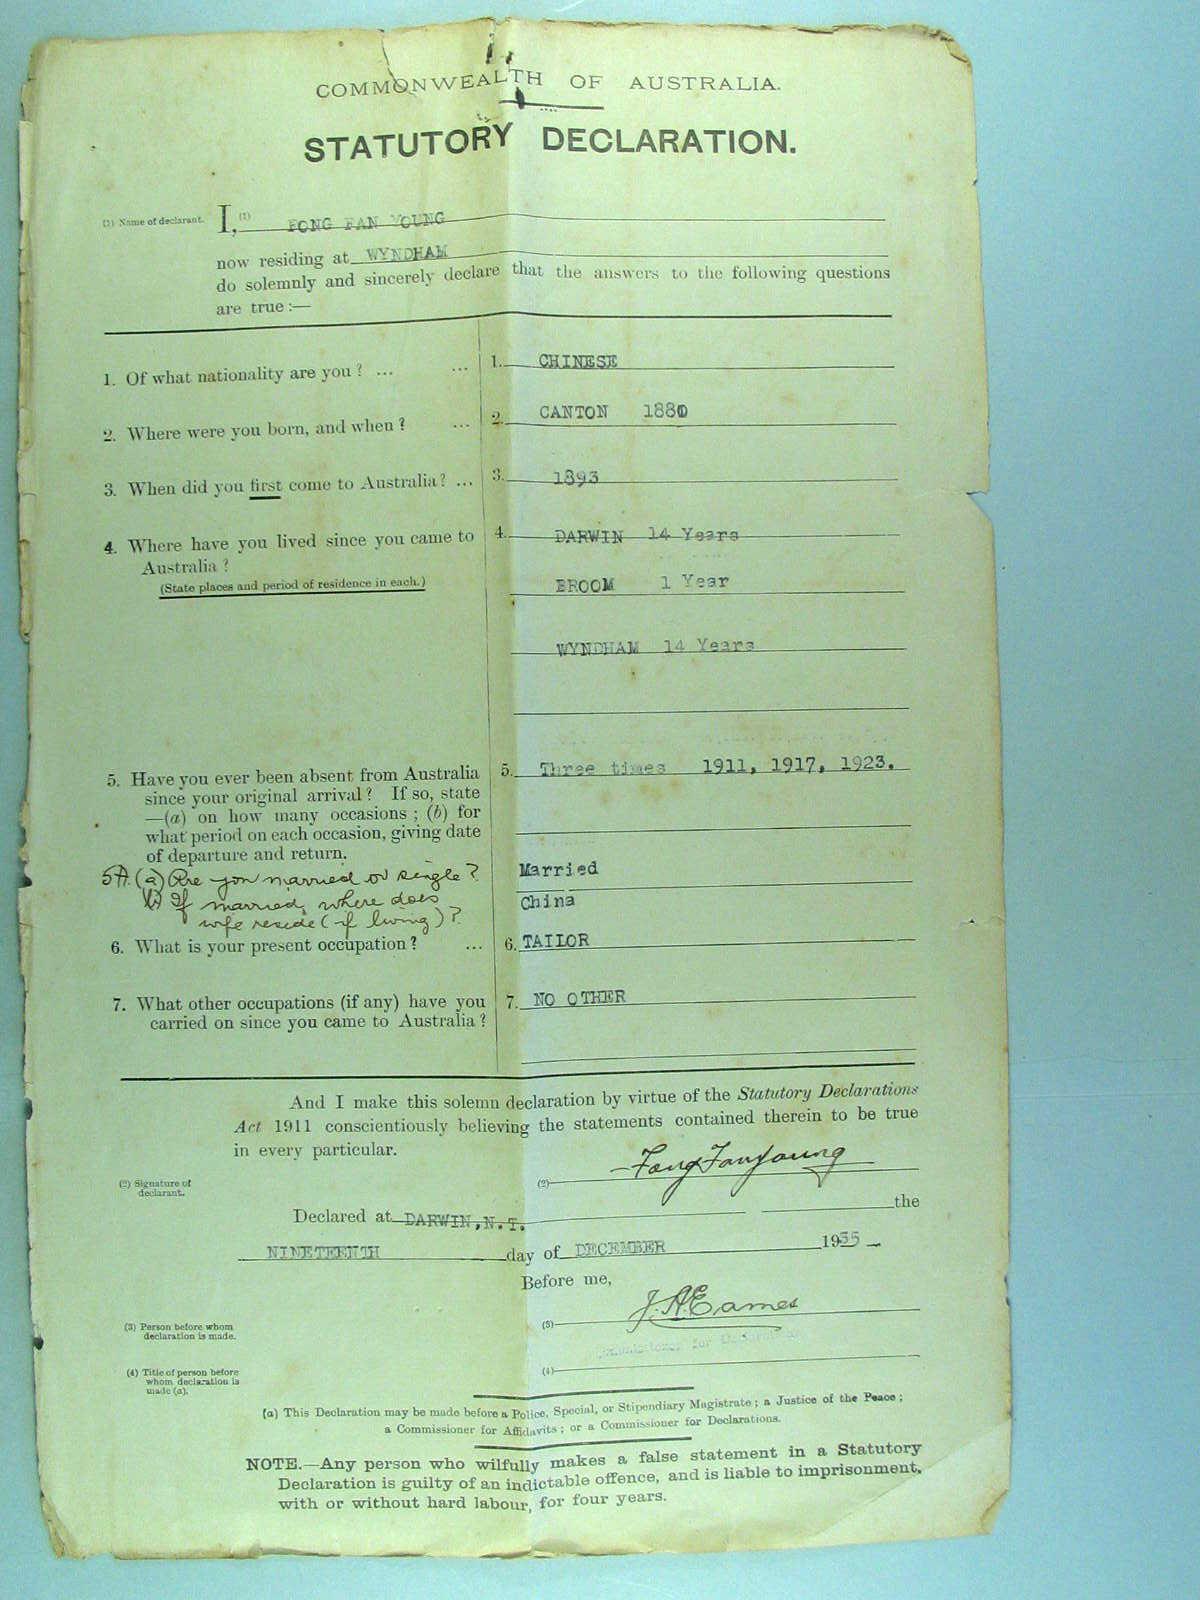 COMMONWEALTH OF AUSTRALIA.
STATUTORY DECLARATION.
(1) Name of declarant. I, (1) FONG FAN YOUNG
now residing at WYNDHAM
do solemnly and sincerely declare that the answers to the following questions
are true :—
1. Of what nationality are you ? ... ... 1. CHINESE
2. Where were you born, and when ? ... 2. CANTON 1880
3. When did you first come to Australia ? ... 3. 1893
4. Where have you lived since you came to 4. DARWIN 14 Years
Australia ?
(State places and period of residence in each.) BROOM 1 Year
WYNDHAM 14 Years
5. Have you ever been absent from Australia 5. Three times 1911, 1917, 1923.
since your original arrival ? If so, state
—(a) on how many occasions ; (b) for
what period on each occasion, giving date
of departure and return.
5A. (a) Are you married or single ? Married
(b) If married, where does China
wife reside (if living) ?
6. What is your present occupation ? ... 6. TAILOR
7. What other occupations (if any) have you 7. NO OTHER
carried on since you came to Australia ?
And I make this solemn declaration by virtue of the Statutory Declarations
Act 1911 conscientiously believing the statements contained therein to be true
in every particular.
(2) Signature of
declarant.
(2) Fong Fan Young
Declared at DARWIN, N.T. the
NINETEENTH day of DECEMBER 1935
Before me,
(3) Person before whom
declaration is made.
(3) J. A. Eames
Commissioner for Declarations
(4) Title of person before
whom declaration is
made (a).
(4)
(a) This Declaration may be made before a Police, Special, or Stipendiary Magistrate ; a Justice of the Peace ;
a Commissioner for Affidavits ; or a Commissioner for Declarations.
NOTE.—Any person who wilfully makes a false statement in a Statutory
Declaration is guilty of an indictable offence, and is liable to imprisonment,
with or without hard labour, for four years.